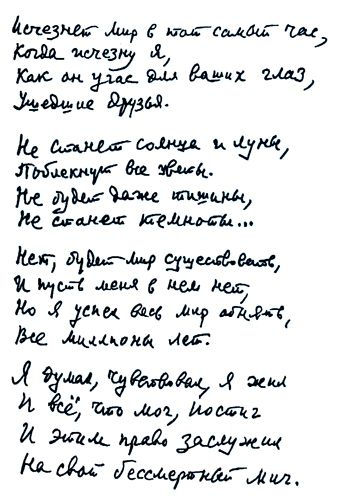 Исчезнет мир в тот самый час,
Когда исчезну я,
Как он угас для ваших глаз,
Ушедшие друзья.
Не станет солнца и луны,
Поблекнут все цветы.
Не будет даже тишины,
Не станет темноты...
Нет, будет мир существовать,
И пусть меня в нем нет,
Но я успел весь мир обнять,
Все миллионы лет.
Я думал, чувствовал, я жил
И всё, что мог, постиг
И этим право заслужил
На свой бессмертный миг.